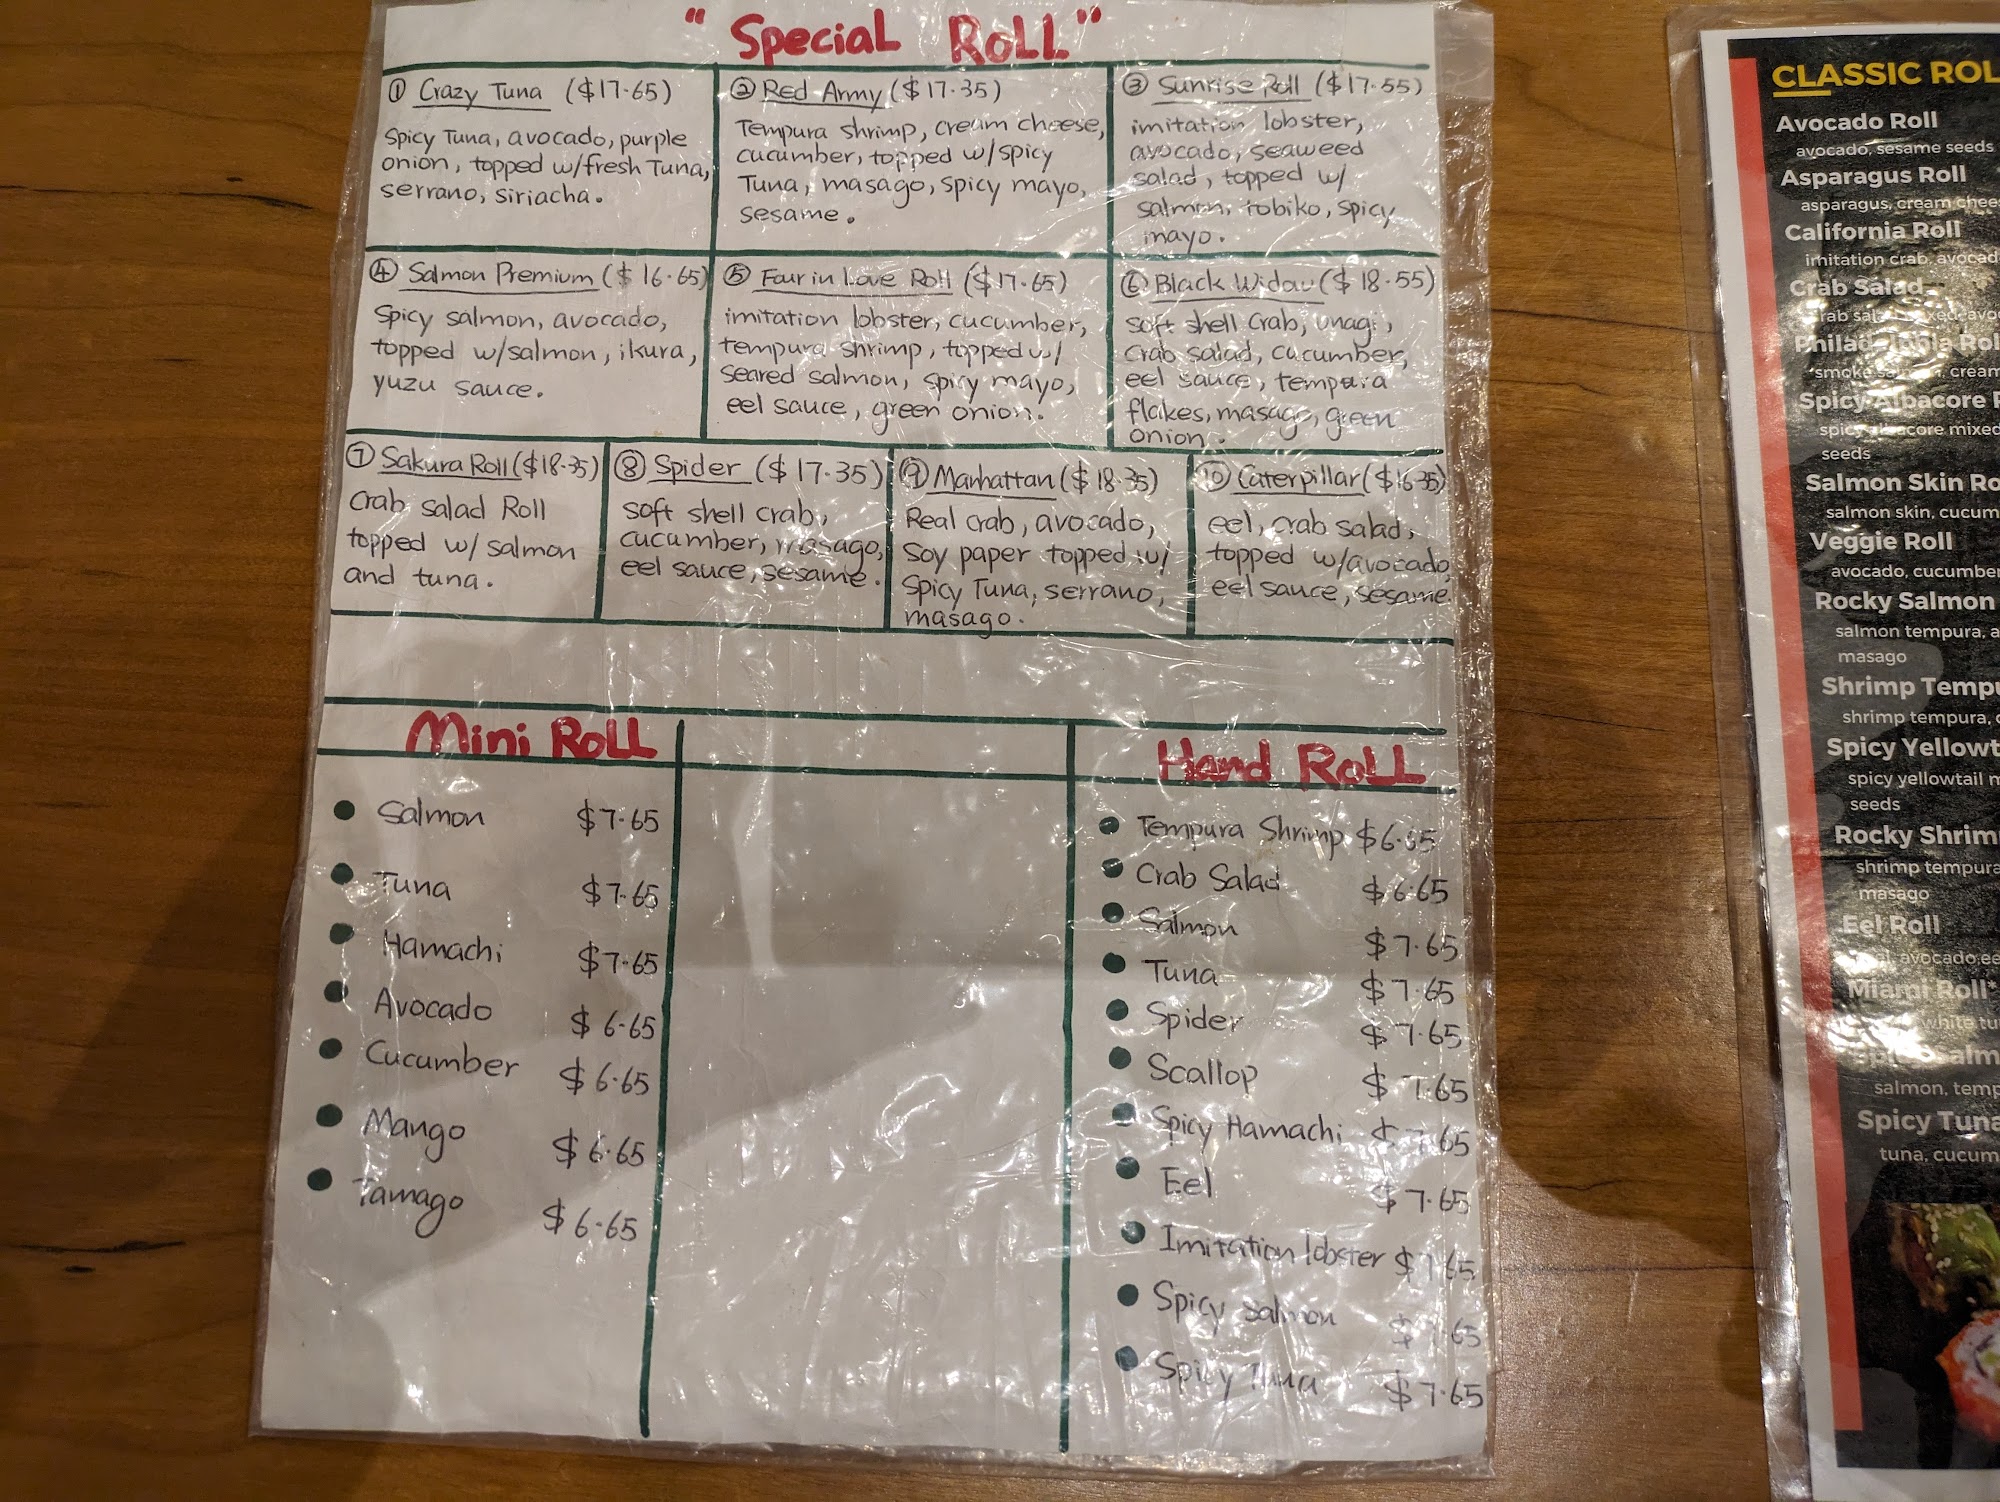 "Special Roll"
① Crazy Tuna ($17.65)
Spicy Tuna, avocado, purple
onion, topped w/fresh Tuna,
serrano, siriacha.
② Red Army ($17.35)
Tempura shrimp, cream cheese,
cucumber, topped w/spicy
Tuna, masago, spicy mayo,
sesame.
③ Sunrise Roll ($17.55)
imitation lobster,
avocado, seaweed
salad, topped w/
salmon, tobiko, spicy
mayo.
④ Salmon Premium ($16.65)
Spicy salmon, avocado,
topped w/salmon, ikura,
yuzu sauce.
⑤ Four in Love Roll ($17.65)
imitation lobster, cucumber,
tempura shrimp, topped w/
seared salmon, spicy mayo,
eel sauce, green onion.
⑥ Black Widow ($18.55)
soft shell Crab, unagi,
Crab salad, cucumber,
eel sauce, tempura
flakes, masago, green
onion.
⑦ Sakura Roll ($18.35)
Crab salad Roll
topped w/ salmon
and tuna.
⑧ Spider ($17.35)
soft shell crab,
cucumber, masago,
eel sauce, sesame.
⑨ Manhattan ($18.35)
Real crab, avocado,
Soy paper topped w/
Spicy Tuna, serrano,
masago.
⑩ Caterpillar ($16.35)
eel, crab salad,
topped w/avocado,
eel sauce, sesame.
Mini Roll
Salmon $7.65
Tuna $7.65
Hamachi $7.65
Avocado $6.65
Cucumber $6.65
Mango $6.65
Tamago $6.65
Hand Roll
Tempura Shrimp $6.65
Crab Salad $6.65
Salmon $7.65
Tuna $7.65
Spider $7.65
Scallop $7.65
Spicy Hamachi $7.65
Eel $7.65
Imitation lobster $7.65
Spicy salmon $7.65
Spicy Tuna $7.65
CLASSIC ROL
Avocado Roll
avocado, sesame seeds
Asparagus Roll
asparagus, cream chee
California Roll
imitation crab, avocad
Crab Salad
crab salad mixed, avo
Philadelphia Rol
smoke salmon, cream
Spicy Albacore R
spicy albacore mixed
seeds
Salmon Skin Ro
salmon skin, cucum
Veggie Roll
avocado, cucumber
Rocky Salmon
salmon tempura, a
masago
Shrimp Tempu
shrimp tempura, c
Spicy Yellowt
spicy yellowtail m
seeds
Rocky Shrim
shrimp tempura
masago
Eel Roll
avocado, ee
Miami Roll*
white tu
Salm
salmon, temp
Spicy Tuna
tuna, cucum